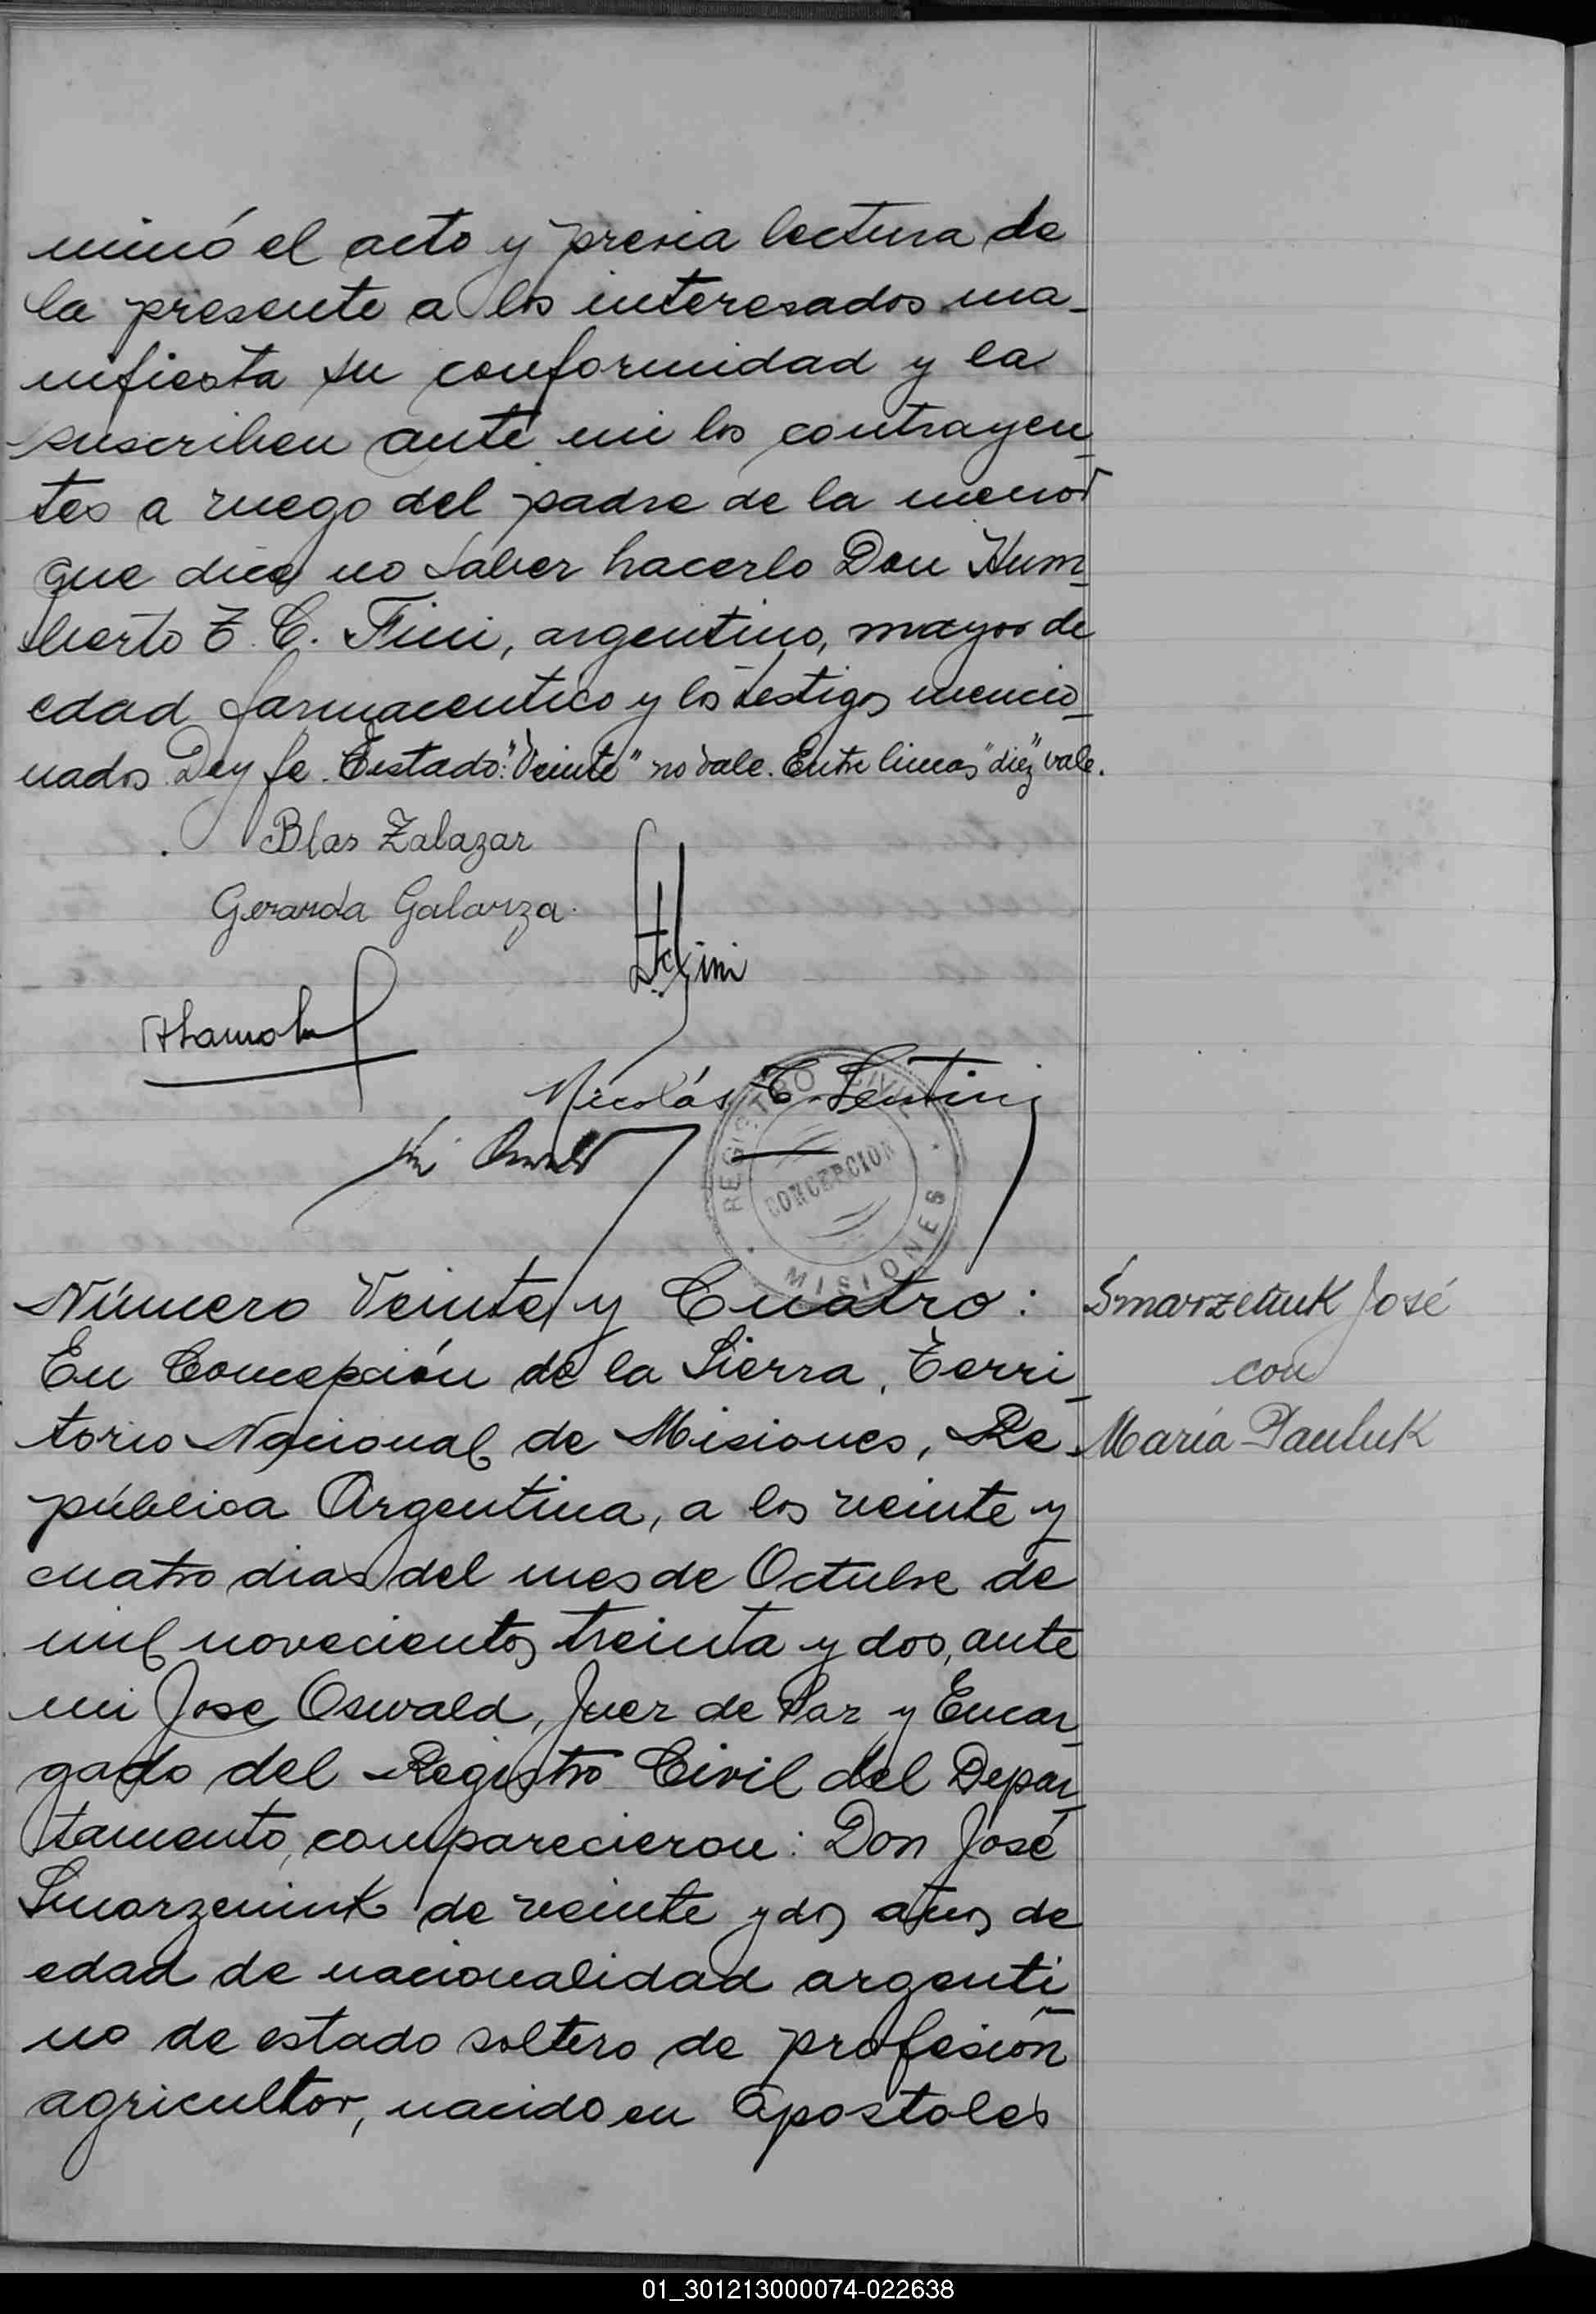 minó el acto y previa lectura de
la presente a los interesados ma-
nifiesta su conformidad y la
suscriben ante mi los contrayen-
tes a ruego del padre de la menor
que dice no saber hacerlo Don Hum-
berto T. C. Fini, argentino, mayor de
edad farmaceutico y los testigos mencio-
nados. Doy fe. Testado: "Veinte" no vale. Entre lineas "diez" vale.
Blas Zalazar
Gerarda Galarza.
Fini
Nicolás C. Sentini
Oswald
REGISTRO CIVIL
CONCEPCION
MISIONES
Número Veinte y Cuatro:
En Concepción de la Sierra, Terri-
torio Nacional de Misiones, Re-
pública Argentina, a los veinte y
cuatro dias del mes de Octubre de
mil novecientos treinta y dos, ante
mi Jose Oswald, Juez de Paz y Encar-
gado del Registro Civil del Depar-
tamento, comparecieron: Don José
Smarzeniuk de veinte y dos años de
edad de nacionalidad argenti-
no de estado soltero de profesión
agricultor, nacido en Apostoles
Smarzeniuk José
con
María Pauluk
01_301213000074-022638